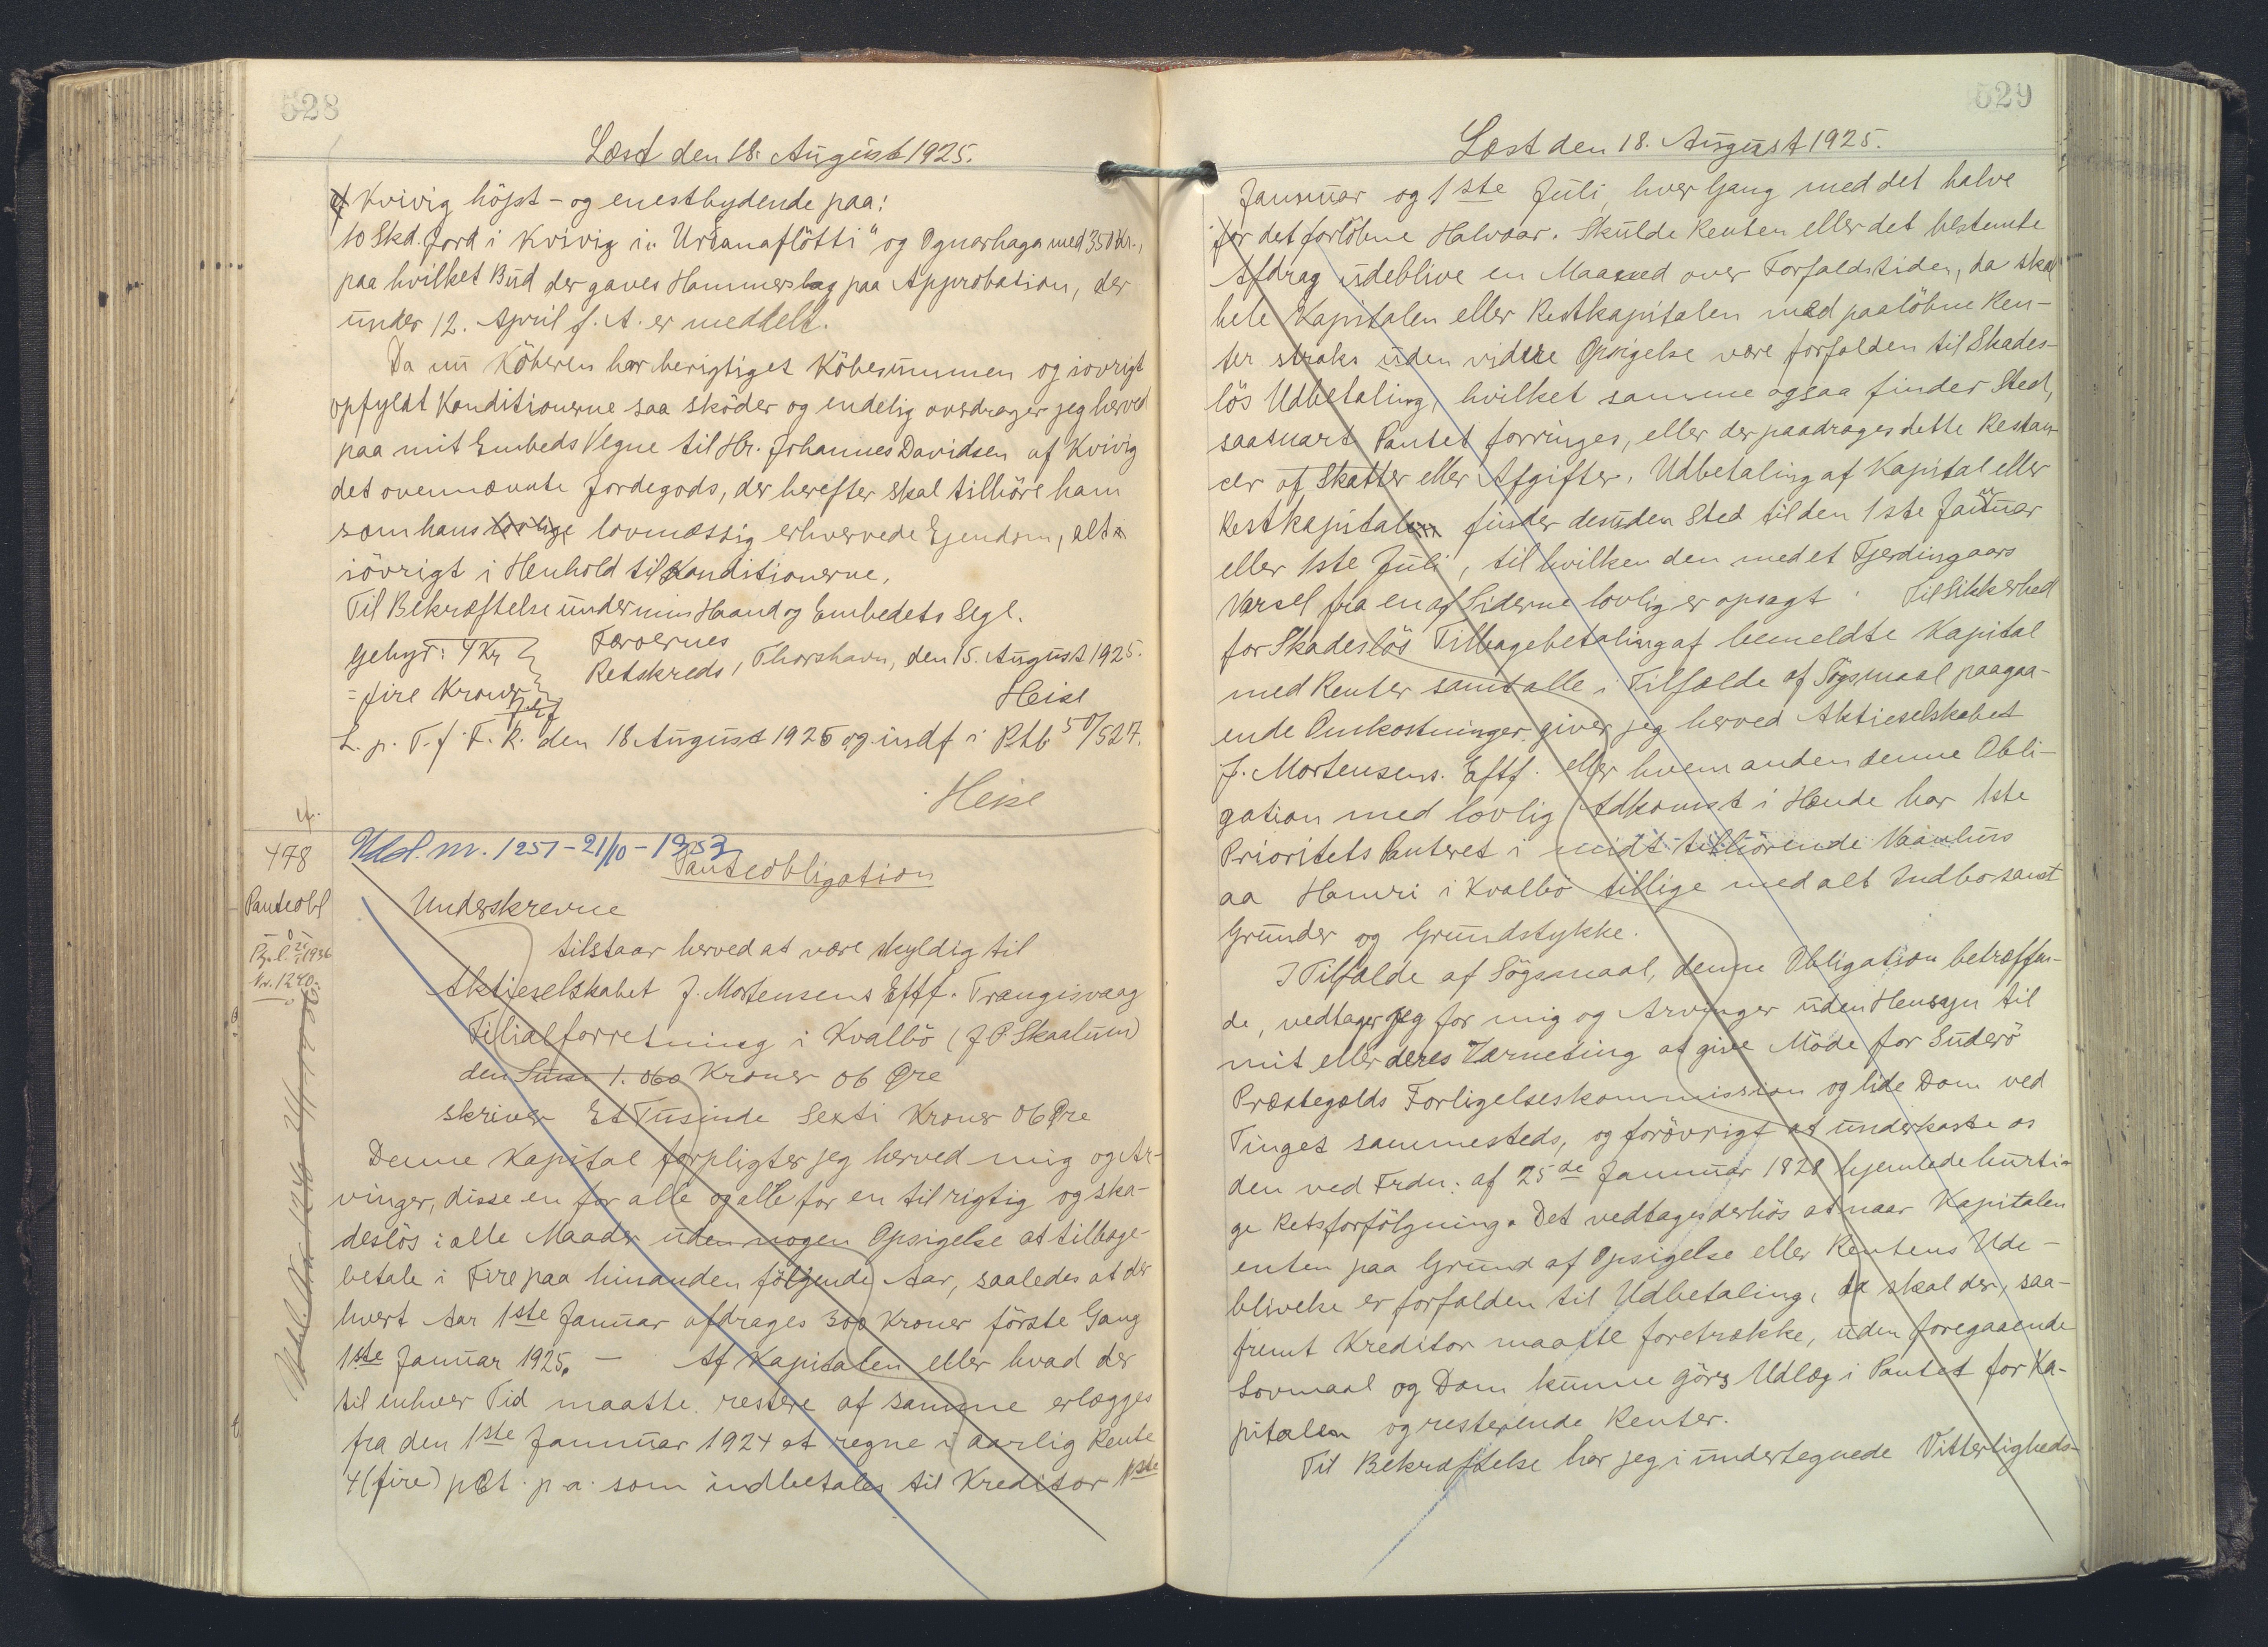 528
Læst den 18. August 1925.
af Kvivig höjst- og enestbydende paa:
10 Skd. Jord i Kvivig i "Urtanaflötti" og Ognarhaga med 350 Kr.,
paa hvilket Bud der gaves Hammerslag paa Approbation, der
under 12. April f. A. er meddelt.
Da nu Köberen har berigtiget Köbesummen og iøvrigt
opfyldt Konditionerne saa sköder og endelig overdrager jeg herved
paa mit Embeds Vegne til Hr. Johannes Davidsen af Kvivig
det ovennævnte Jordegods, der herefter skal tilhöre ham
som hans lovlige lovmæssig erhvervede Ejendom, alt
iövrigt i Henhold til Konditionerne.
Til Bekræftelse under min Haand og Embedets Segl.
Gebyr: 4 Kr
= fire Kroner
Færøernes
Retskreds, Thorshavn, den 15. August 1925.
Heise
L. p. T. f. F. R. den 18 August 1925 og indf i Ptb 50/527.
Heise
478
Udsl. nr. 1251-21/10-1953
Panteobligation
Panteobl
Nr. 1240
Underskrevne
tilstaar herved at være skyldig til
Aktieselskabet J. Mortensens Eftf. Trangisvaag
Filialforretning i Kvalbö (J P Skaalum)
den Sum 1.060 Kroner 06 Øre
skriver Et Tusinde Sexti Kroner 06 Øre
Denne Kapital forpligter jeg herved mig og Ar-
vinger, disse en for alle og alle for en til rigtig og ska-
deslös i alle Maader uden nogen Opsigelse at tilbage-
betale i Fire paa hinanden fölgende Aar, saaledes at der
hvert Aar 1ste Januar afdrages 300 Kroner förste Gang
1ste Januar 1925. — Af Kapitalen eller hvad der
til enhver Tid maatte restere af samme erlægges
fra den 1ste Januar 1924 at regne i aarlig Rente
4 (fire) pCt. p. a. som indbetales til Kreditor 1ste
529
Læst den 18. August 1925.
Januar og 1ste Juli, hver Gang med det halve
for det forlöbne Halvaar. Skulde Renten eller det bestemte
Afdrag udeblive en Maaned over Forfaldstiden, da skal
hele Kapitalen eller Restkapitalen med paalöbne Ren-
ter straks uden videre Opsigelse være forfalden til Skades-
lös Udbetaling, hvilket samme ogsaa finder Sted,
saasnart Pantet forringes, eller der paadrages dette Restan-
cer af Skatter eller Afgifter. Udbetaling af Kapital eller
Restkapitalen finder desuden Sted til den 1ste Januar
eller 1ste Juli, til hvilken den med et Fjerdingaars
Varsel fra en af Siderne lovlig er opsagt. Til Sikkerhed
for Skadeslös Tilbagebetaling af bemeldte Kapital
med Renter samt alle i Tilfælde af Sögsmaal paagaa-
ende Omkostninger giver jeg herved Aktieselskabet
J. Mortensens. Eftf. eller hvem anden denne Obli-
gation med lovlig Adkomst i Hænde har 1ste
Prioritets Panteret i midt tilhörende Vaanhus
aa Hamri i Kvalbö tillige med alt Indbo samt
Grunder og Grundstykke.
I Tilfælde af Sögsmaal, denne Obligation betræffen-
de, vedtager jeg for mig og Arvinger uden Hensyn til
mit eller deres Værneting at give Möde for Suderö
Præstegælds Forligelseskommission og lide Dom ved
Tinget sammesteds, og forövrigt at underkaste os
den ved Frdn. af 25de Januar 1828 hjemlede hurti-
ge Retsforfölgning. Det vedtages derhös at naar Kapitalen
enten paa Grund af Opsigelse eller Rentens Ude-
blivelse er forfalden til Udbetaling, da skal der, saa-
fremt Kreditor maatte foretrække, uden foregaaende
Lovmaal og Dom kunne görs Udlæg i Pantet for Ka-
pitalen og resterende Renter.
Til Bekræftelse har jeg i undertegnede Vitterligheds-